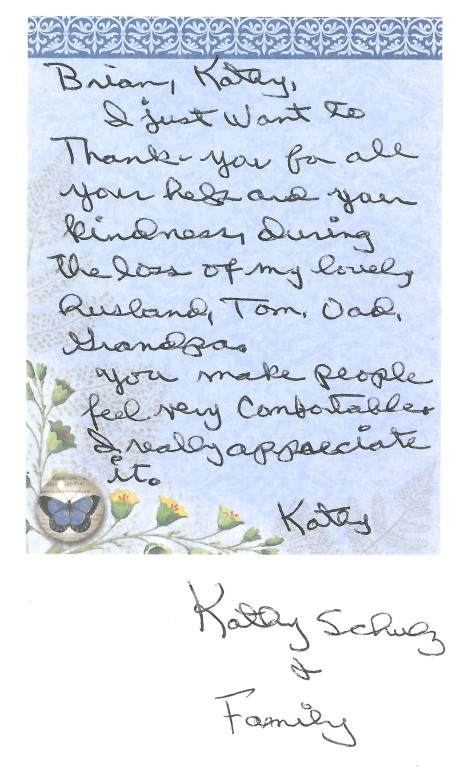 Brian, Kathy,
I just want to
Thank-you for all
your help and your
kindness, during
the loss of my lovely
husband, Tom. Dad,
Grandpa.
you make people
feel very comfortable.
I really appreciate
it.
Kathy
Kathy Schulz
&
Family